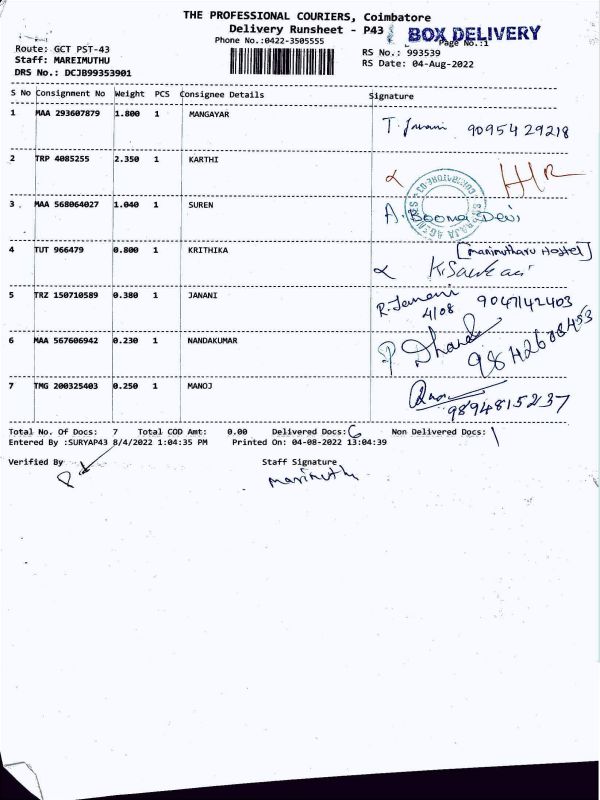 THE PROFESSIONAL COURIERS, Coimbatore
Delivery Runsheet - P43
BOX DELIVERY
Phone No.:0422-3505555
Page No.:1
Route: GCT PST-43
RS No.: 993539
Staff: MAREIMUTHU
RS Date: 04-Aug-2022
DRS No.: DCJB99353901
S No Consignment No Weight PCS Consignee Details Signature
1 MAA 293607879 1.800 1 MANGAYAR
9095429218
2 TRP 4085255 2.350 1 KARTHI
HR
3 MAA 568064027 1.040 1 SUREN
A. Booma Devi
4 TUT 966479 0.800 1 KRITHIKA
Hostel]
5 TRZ 150710589 0.380 1 JANANI
R. Janani 9047142403
4/08
6 MAA 567606942 0.230 1 NANDAKUMAR
7 TMG 200325403 0.250 1 MANOJ
9894815237
Total No. Of Docs: 7 Total COD Amt: 0.00 Delivered Docs: 6 Non Delivered Docs: 1
Entered By :SURYAP43 8/4/2022 1:04:35 PM Printed On: 04-08-2022 13:04:39
Verified By Staff Signature
marimuthu